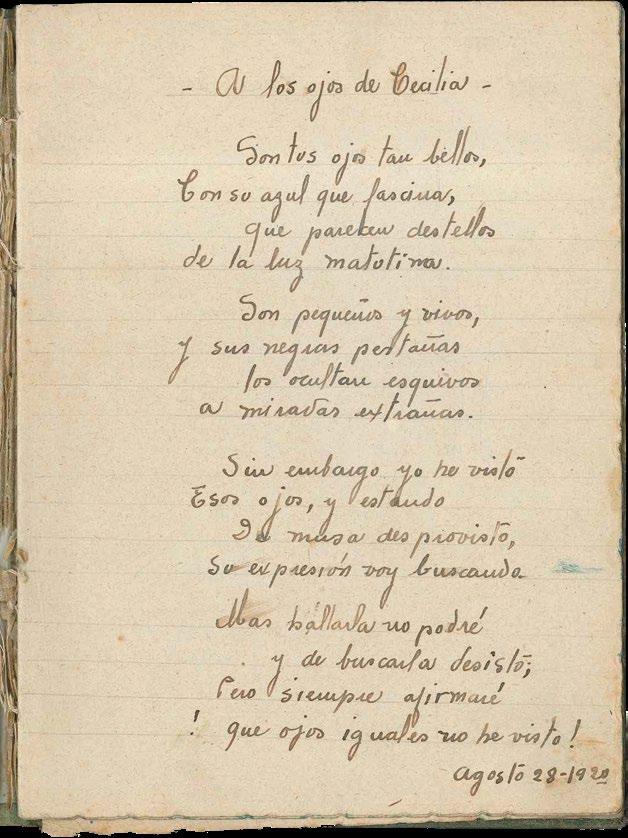 - A los ojos de Cecilia -
Son tus ojos tan bellos,
Con su azul que fascina,
que parecen destellos
de la luz matutina.
Son pequeños y vivos,
y sus negras pestañas
los ocultan esquivos
a miradas extrañas.
Sin embargo yo he visto
Esos ojos, y estando
De musa desprovisto,
Su expresión voy buscando
Mas hállarla no podré
y de buscarla desisto;
Pero siempre afirmaré
! que ojos iguales no he visto!
Agosto 28-1920